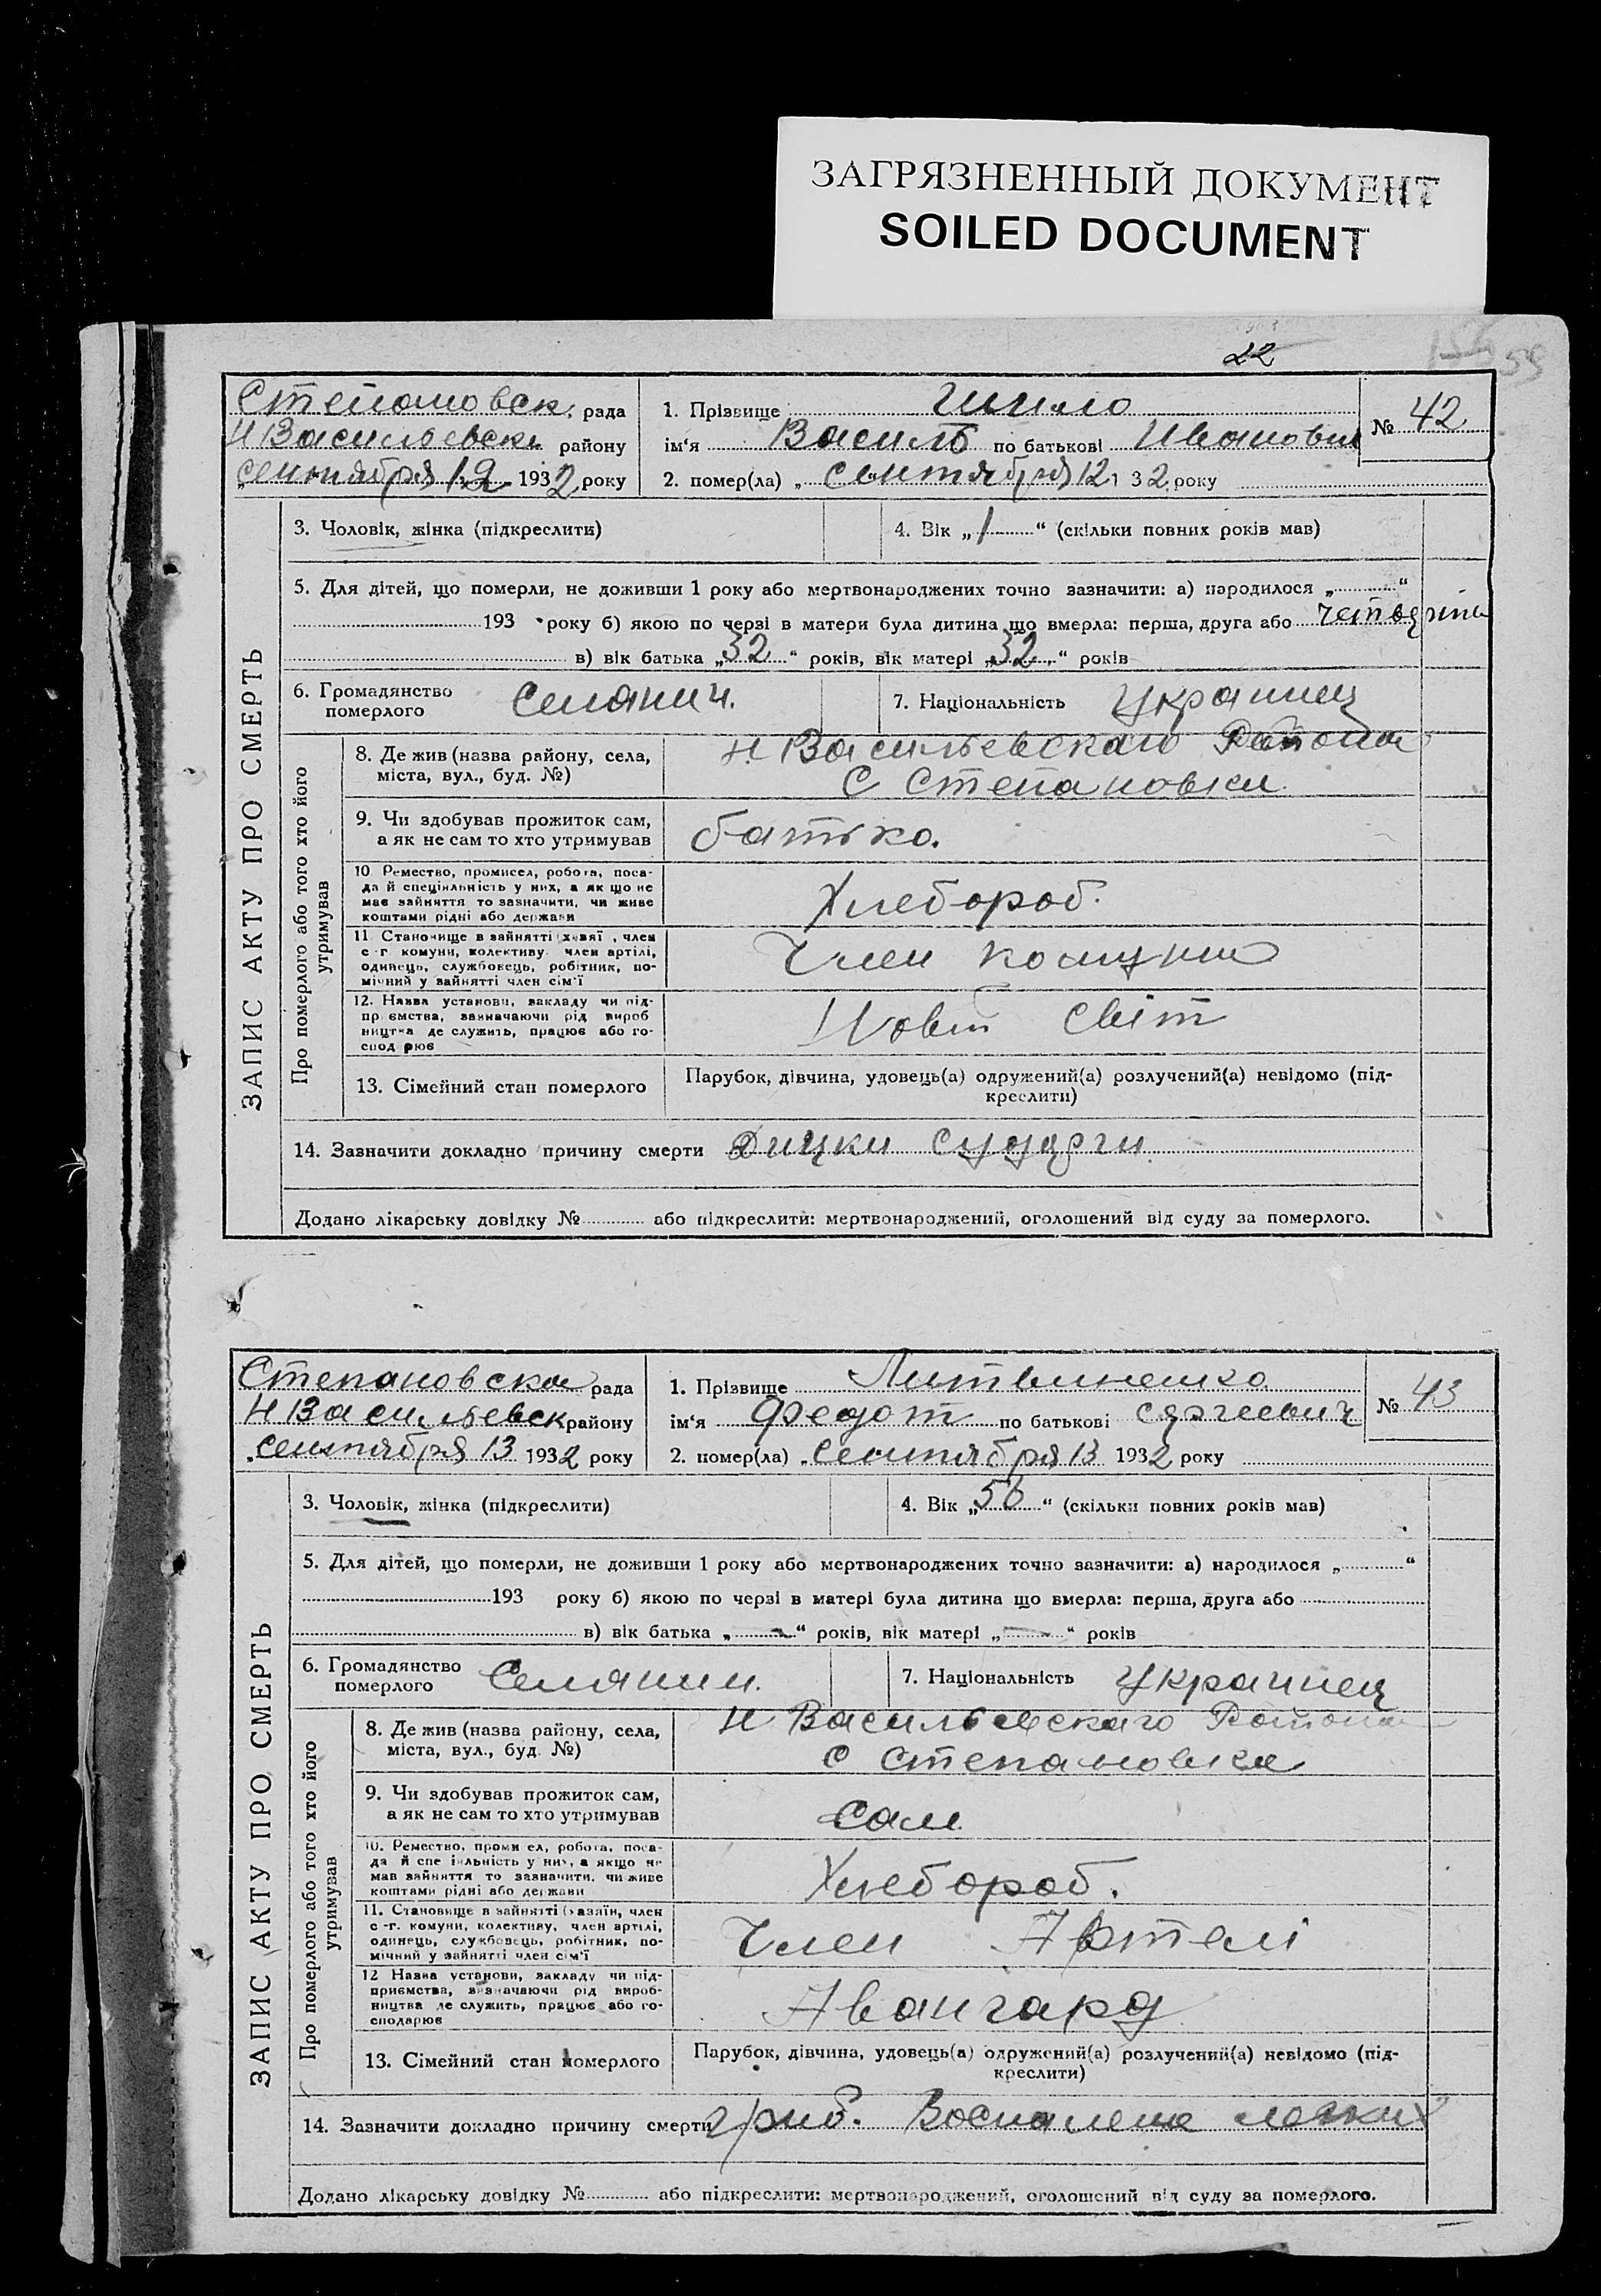 ЗАГРЯЗНЕННЫЙ ДОКУМЕНТ
SOILED DOCUMENT
22
59
Степановск. рада
Н Васильевск району
сентября 12 1932 року
1. Прізвище Шило
ім'я Василь по батькові Иванович
№ 42
2. помер(ла) „ сентября 12 1 32 року
ЗАПИС АКТУ ПРО СМЕРТЬ
3. Чоловік, жінка (підкреслити)
4. Вік „1“ (скільки повних років мав)
5. Для дітей, що померли, не доживши 1 року або мертвонароджених точно зазначити: а) народилося „ “
193 року б) якою по черзі в матери була дитина що вмерла: перша, друга або
в) вік батька „32“ років, вік матері „32“ років
6. Громадянство померлого Селянин.
7. Національність Украинец
Про померлого або того хто його утримував
8. Де жив (назва району, села, міста, вул., буд. №)
Н. Васильевскаго Района
С Степановки
9. Чи здобував прожиток сам, а як не сам то хто утримував
батько.
10 Ремество, промисел, робота, посада й спеціяльність у них, а як що не має зайняття то зазначити, чи живе коштами рідні або держави
Хлебороб.
11 Становище в зайнятті хазяї , член с-г комуни, колективу член артілі, одинець, службовець, робітник, помічний у зайнятті член сім'ї
Член комуни
12. Назва установи, закладу чи підприємства, зазначаючи рід виробництва де служить, працює або господ рює
Новий світ
13. Сімейний стан померлого
Парубок, дівчина, удовець(а) одружений(а) розлучений(а) невідомо (підкреслити)
14. Зазначити докладно причину смерти
Додано лікарську довідку № або підкреслити: мертвонароджений, оголошений від суду за померлого.
Степановска рада
Н Васильевск району
сентября 13 1932 року
1. Прізвище Литвиненко
ім'я Федот по батькові Сергеевич
№ 43
2. помер(ла) „ Сентября 13 1932 року
ЗАПИС АКТУ ПРО СМЕРТЬ
3. Чоловік, жінка (підкреслити)
4. Вік „56“ (скільки повних років мав)
5. Для дітей, що померли, не доживши 1 року або мертвонароджених точно зазначити: а) народилося „ “
193 року б) якою по черзі в матері була дитина що вмерла: перша, друга або
в) вік батька „ — “ років, вік матері „ — “ років
6. Громадянство померлого Селянин.
7. Національність Украинец
Про померлого або того хто його утримував
8. Де жив (назва району, села, міста, вул., буд. №)
Н Васильевскаго Района
С Степановка
9. Чи здобував прожиток сам, а як не сам то хто утримував
Сам
10. Ремество, проми ел, робота, посада й спе іяльність у них, а якщо не мав зайняття то зазначити, чи живе коштами рідні або держави
Хлебороб.
11. Становище в зайнятті (хазяїн, член с-г. комуни, колективу, член артілі, одинець, службовець, робітник, помічний у зайнятті член сім'ї
Член Артелі
12 Назва установи, закладу чи підприємства, зазначаючи рід виробництва де служить, працює або господарює
Авангард
13. Сімейний стан померлого
Парубок, дівчина, удовець(а) одружений(а) розлучений(а) невідомо (підкреслити)
14. Зазначити докладно причину смерти Воспаление легких
Додано лікарську довідку № або підкреслити: мертвонароджений, оголошений від суду за померлого.